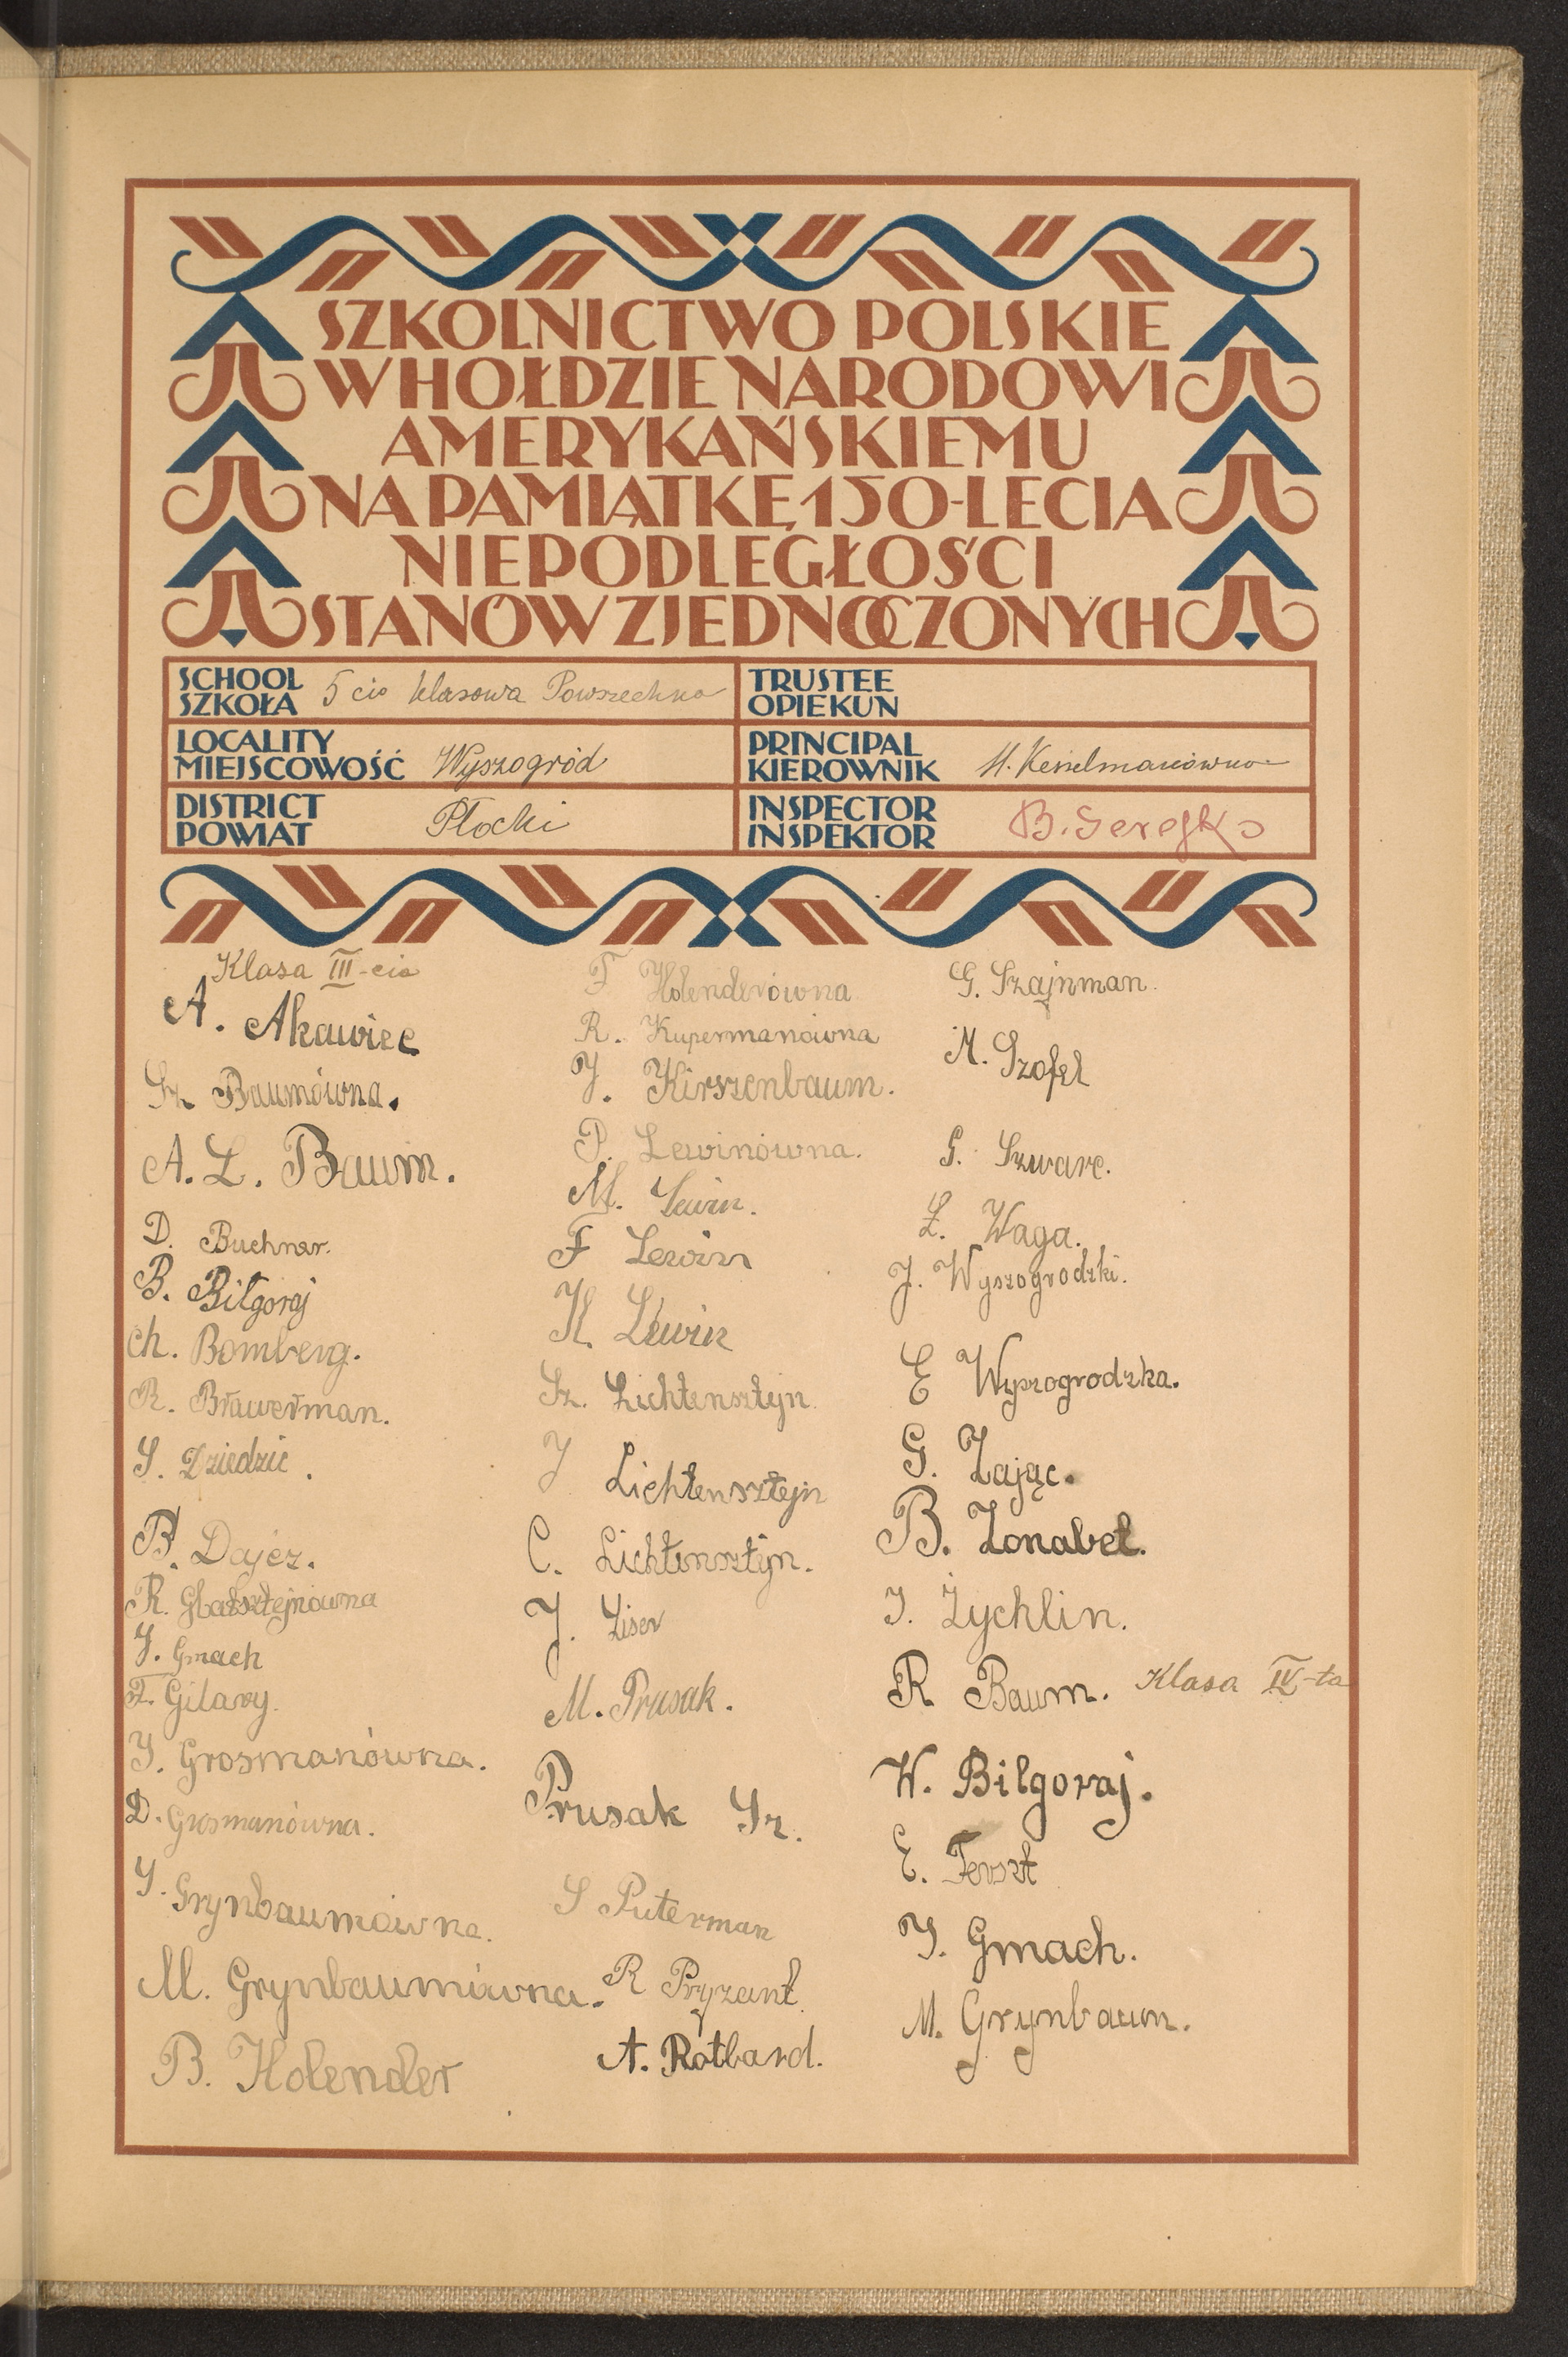 SZKOLNICTWO POLSKIE
W HOŁDZIE NARODOWI
AMERYKAŃSKIEMU
NA PAMIĄTKĘ 150-LECIA
NIEPODLEGŁOŚCI
STANÓW ZJEDNOCZONYCH
SCHOOL
SZKOŁA
5 cio klasowa Powszechna
TRUSTEE
OPIEKUN
LOCALITY
MIEJSCOWOŚĆ
Wyszogród
PRINCIPAL
KIEROWNIK
DISTRICT
POWIAT
Płocki
INSPECTOR
INSPEKTOR
B. Gerefko
Klasa III-cia
A. Akawiec
Sz. Baumówna.
A. L. Baum.
D. Buchner.
B. Biłgoraj
Ch. Bomberg.
R. Brawerman.
S. Dziedzic.
B. Dajez.
R. Glatsztejnówna
J. Gmach
F. Gilary.
J. Grosmanówna.
D. Grosmanówna.
J. Grynbaumówna.
M. Grynbaumówna.
B. Holender
F Holenderówna
R. Kupermanówna
J. Kirszenbaum.
P. Lewinówna.
M. Lewin.
F Lewin
K. Lewin
Sz. Lichtensztejn
J Lichtensztejn
C. Lichtensztejn.
J. Liser
M. Prusak.
Prusak Sz.
S Puterman
R Pryzant.
A. Rotbard.
G. Szajnman.
M. Szofel
G. Szwarc.
Ł. Waga.
J. Wyszogrodzki.
E Wyszogrodzka.
G. Zając.
B. Zonabet.
J. Żychlin.
R Baum. Klasa IV-ta
W. Bilgoraj.
E. Ferszt
J. Gmach.
M. Grynbaum.